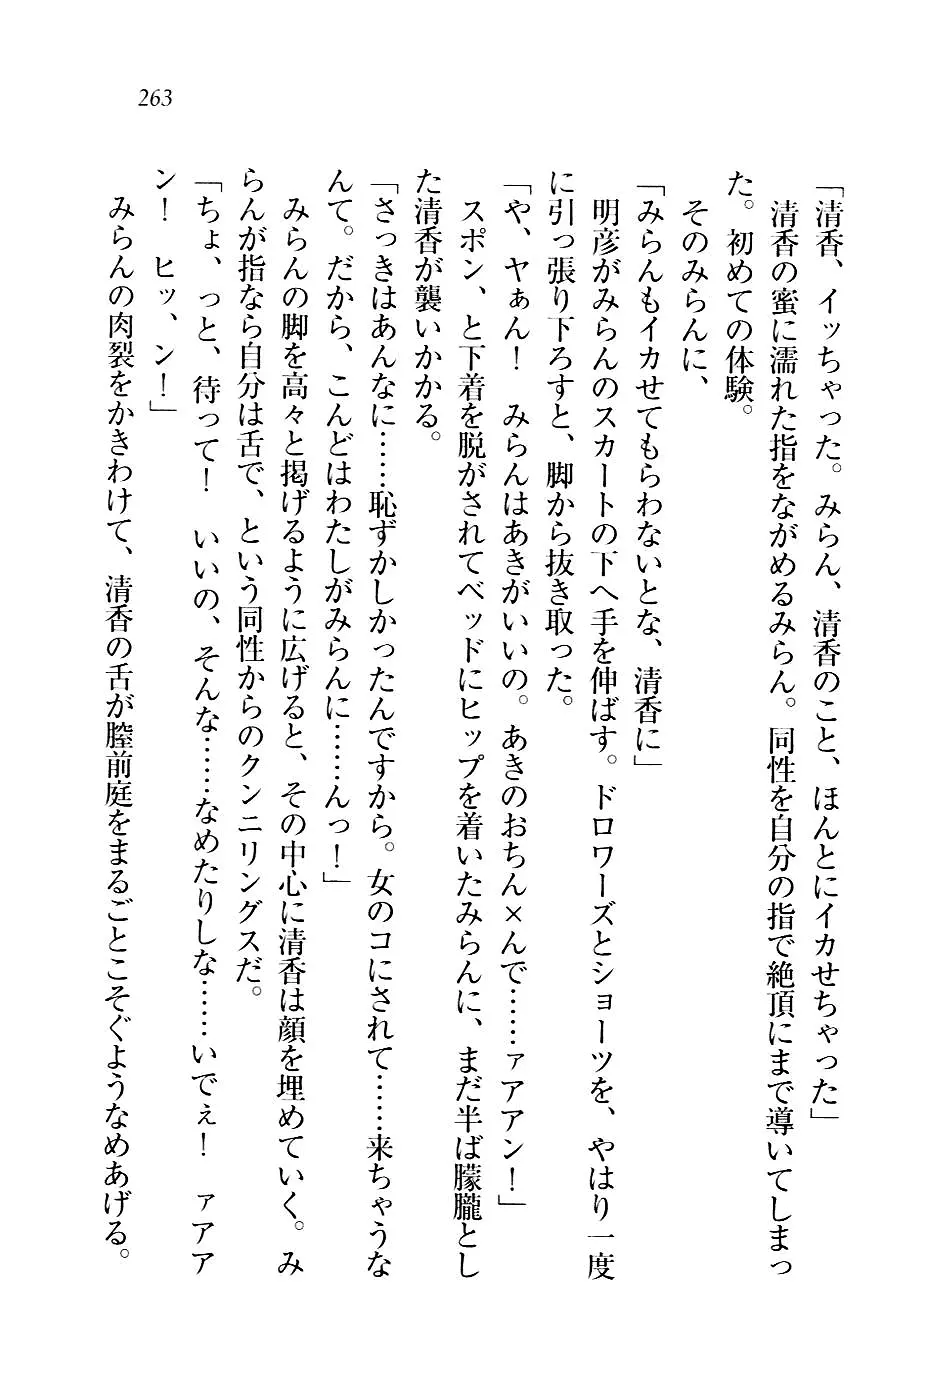 263
「清香、イッちゃった。みらん、清香のこと、ほんとにイカせちゃった」
清香の蜜に濡れた指をながめるみらん。同性を自分の指で絶頂にまで導いてしまっ
た。初めての体験。
そのみらんに、
「みらんもイカせてもらわないとな、清香に」
明彦がみらんのスカートの下へ手を伸ばす。ドロワーズとショーツを、やはり一度
に引っ張り下ろすと、脚から抜き取った。
「や、ヤぁん！　みらんはあきがいいの。あきのおちん×んで……ァアアン！」
スポン、と下着を脱がされてベッドにヒップを着いたみらんに、まだ半ば朦朧とし
た清香が襲いかかる。
「さっきはあんなに……恥ずかしかったんですから。女のコにされて……来ちゃうな
んて。だから、こんどはわたしがみらんに……んっ！」
みらんの脚を高々と掲げるように広げると、その中心に清香は顔を埋めていく。み
らんが指なら自分は舌で、という同性からのクンニリングスだ。
「ちょ、っと、待って！　いいの、そんな……なめたりしな……いでぇ！　ァアア
ン！　ヒッ、ン！」
みらんの肉裂をかきわけて、清香の舌が膣前庭をまるごとこそぐようなめあげる。